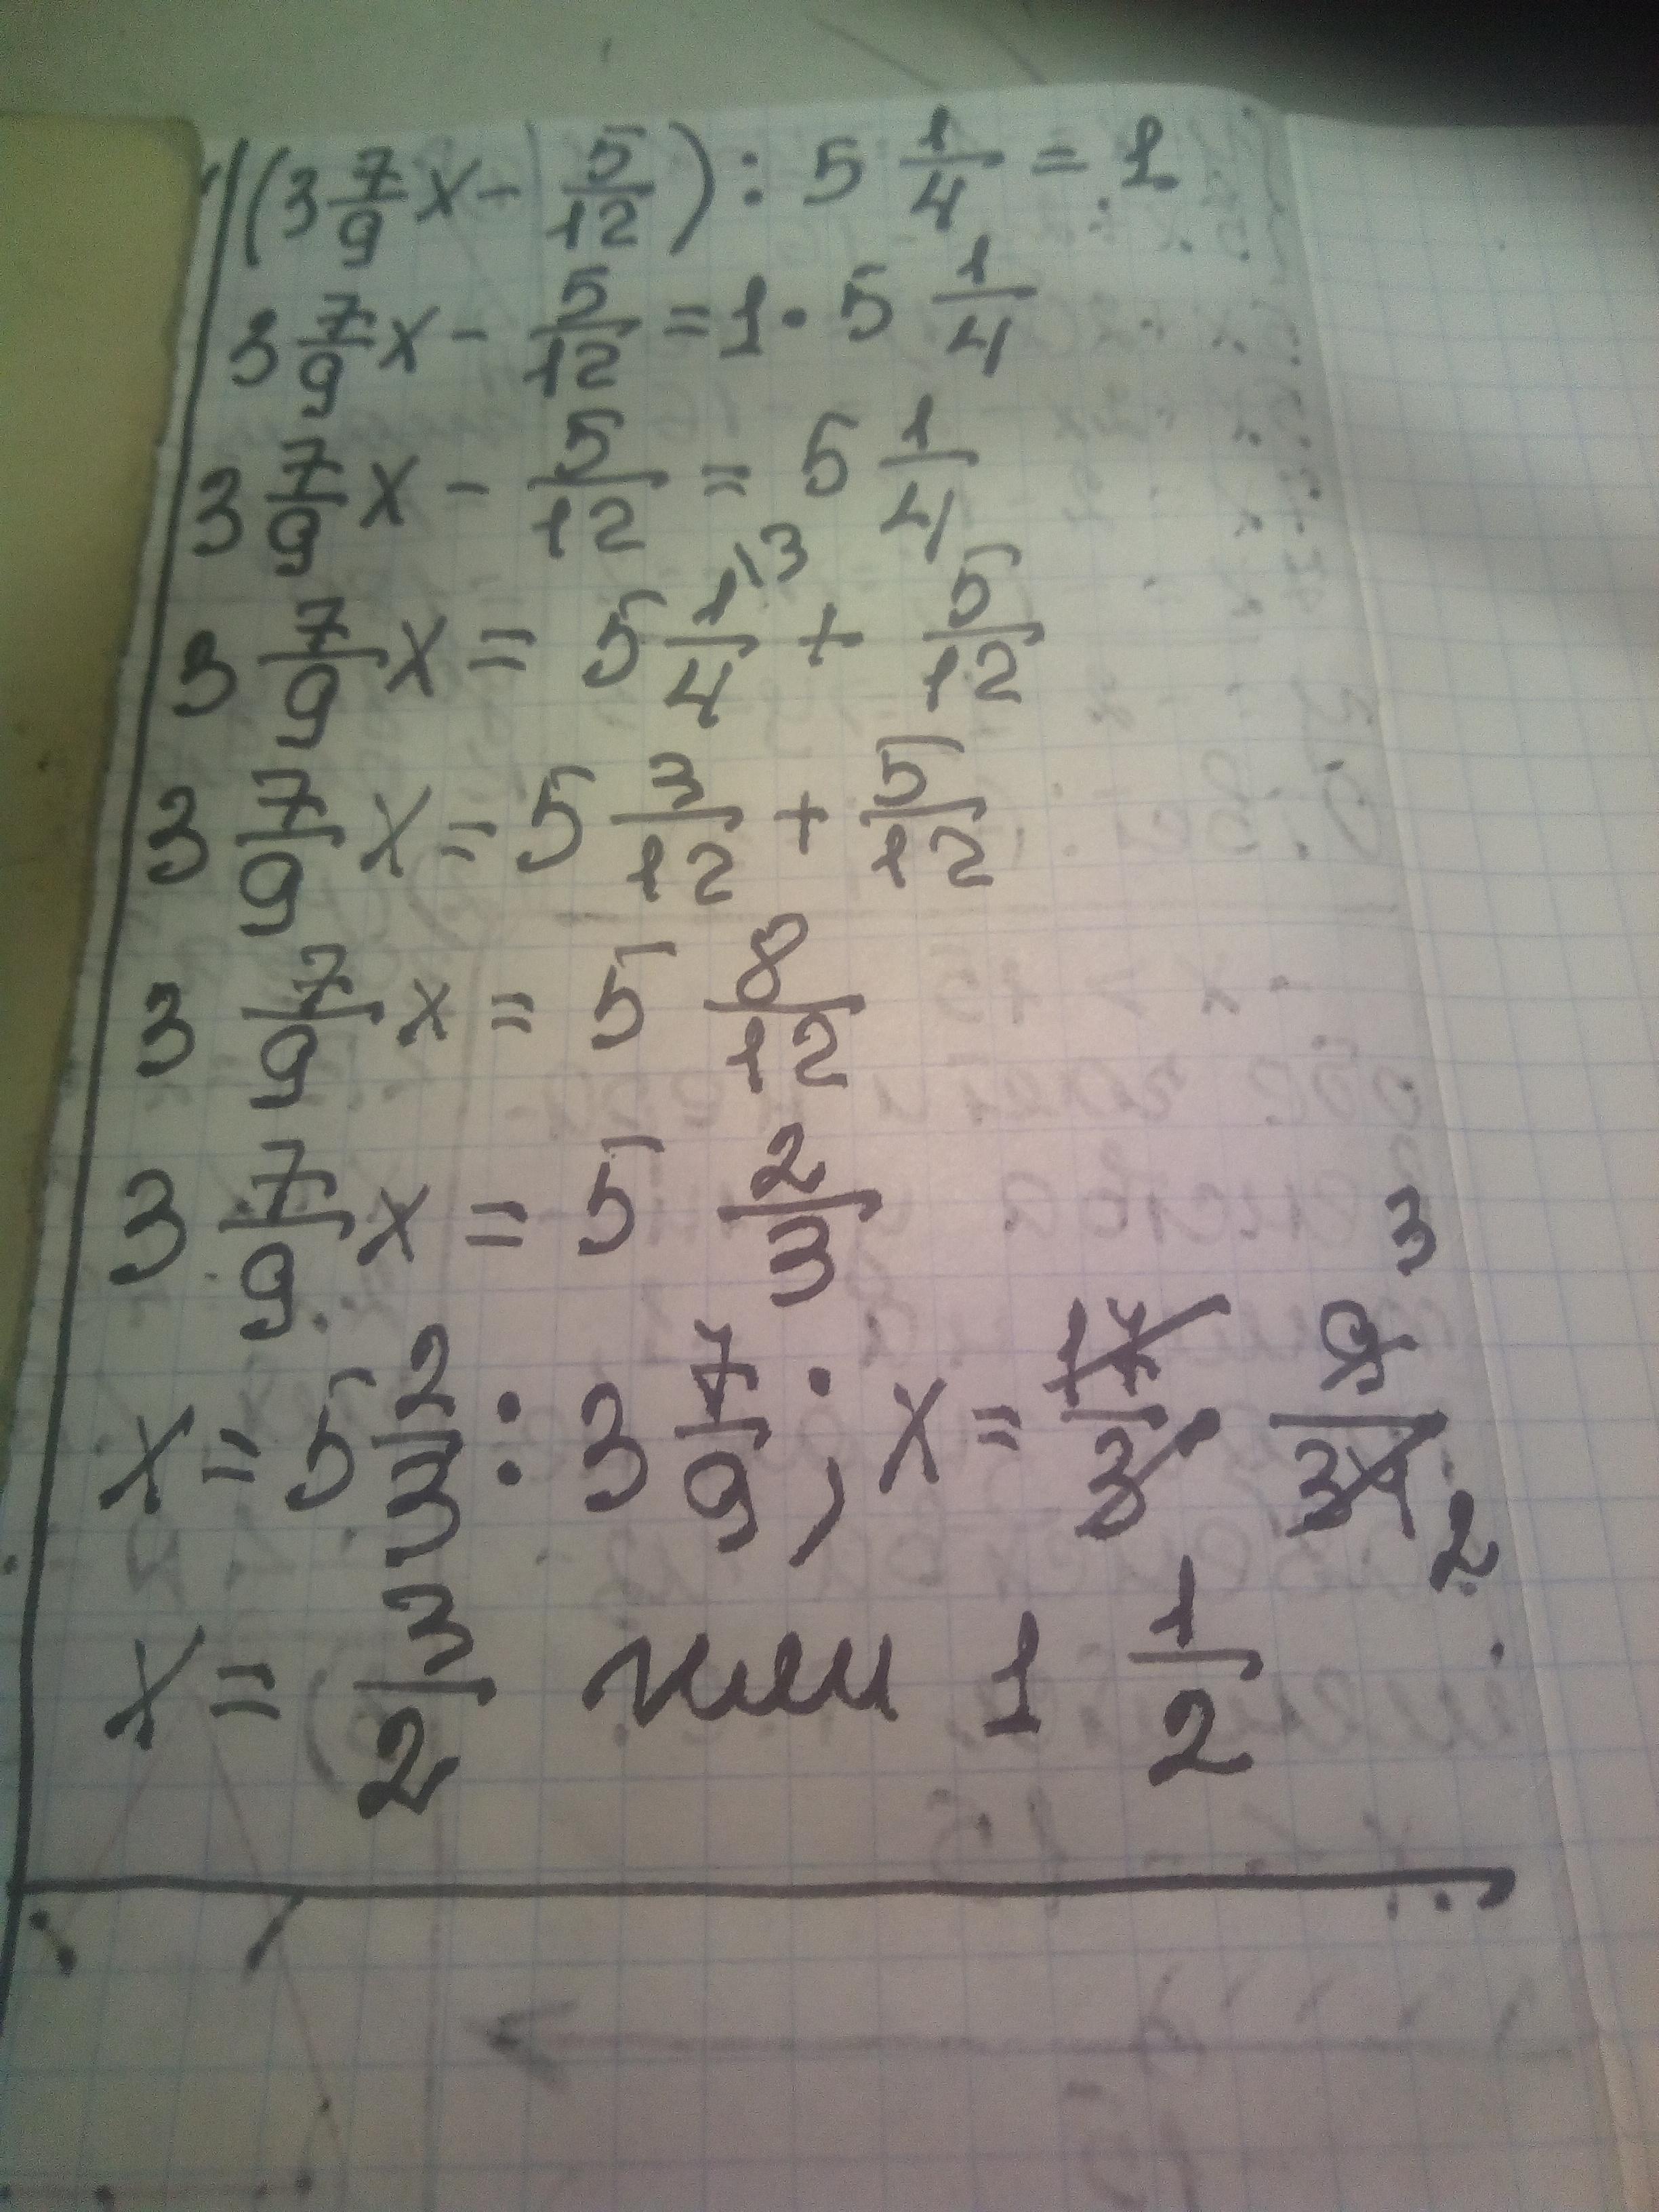 (3 7/9 x - 5/12) : 5 1/4 = 1
3 7/9 x - 5/12 = 1 · 5 1/4
3 7/9 x - 5/12 = 5 1/4
3 7/9 x = 5 1\3/4 + 5/12
3 7/9 x = 5 3/12 + 5/12
3 7/9 x = 5 8/12
3 7/9 x = 5 2/3
x = 5 2/3 : 3 7/9 ; x = 17/3 · 9 3/34 2
x = 3/2 или 1 1/2